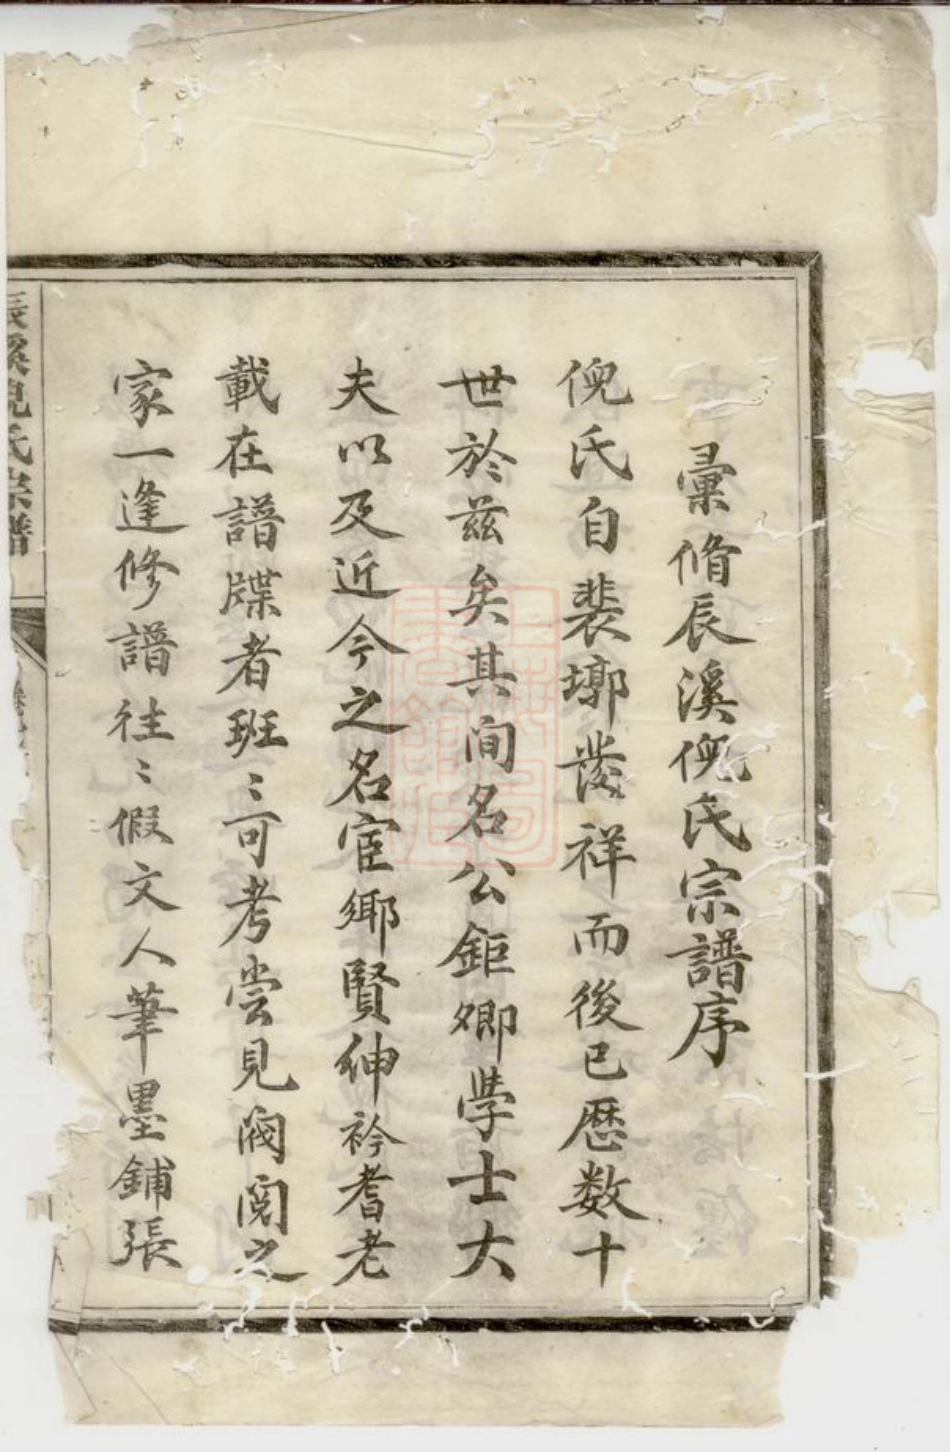 彙脩辰溪倪氏宗譜序
倪氏自裴墎發祥而後已歷数十
世於茲矣其间名公鉅卿學士大
夫以及近今之名宦鄉賢紳衿耆老
載在譜牒者班〻可考嘗見阀阅之
家一逢修譜往〻假文人筆墨鋪張
辰溪倪氏宗譜